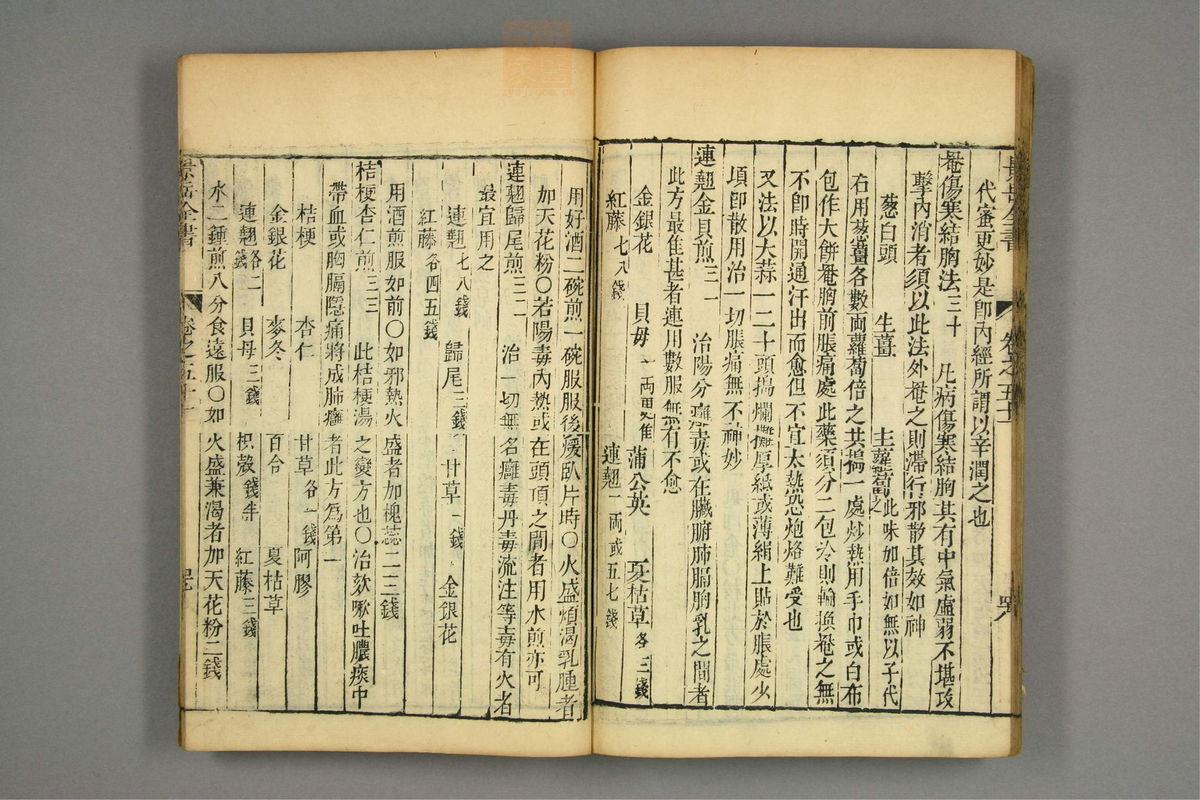 景岳全書 卷之五十一 罜
代蜜更妙是卽內經所謂以辛潤之也
罨傷寒結胸法三十 凡病傷寒結胸其有中氣虛弱不堪攻
擊內消者須以此法外罨之則滯行邪散其效如神
葱白頭 生薑 生蘿蔔此味加倍如無以子代之
右用葱薑各數兩蘿蔔倍之共搗一處炒熱用手巾或白布
包作大餅罨胸前脹痛處此藥須分二包冷則輪換罨之無
不卽時開通汗出而愈但不宜太熱恐炮烙難受也
又法以大蒜一二十頭搗爛攤厚紙或薄絹上貼於脹處少
頃卽散用治一切脹痛無不神妙
連翹金貝煎三一 治陽分癰毒或在臟腑肺膈胸乳之間者
此方最佳甚者連用數服無有不愈
金銀花 貝母 蒲公英 夏枯草各三錢
紅藤七八錢 連翹一兩或五七錢
用好酒二碗煎一碗服服後煖臥片時〇火盛煩渴乳腫者
加天花粉〇若陽毒內熱或在頭頂之間者用水煎亦可
連翹歸尾煎三二 治一切無名癰毒丹毒流注等毒有火者
最宜用之
連翹七八錢 歸尾三錢 甘草一錢 金銀花
紅藤各四五錢
用酒煎服如前〇如邪熱火盛者加槐蕊二三錢
桔梗杏仁煎三三 此桔梗湯之變方也〇治欬嗽吐膿痰中
帶血或胸膈隱痛將成肺癰者此方爲第一
桔梗 杏仁 甘草各一錢 阿膠
金銀花 麥冬 百合 夏枯草
連翹各二錢 貝母三錢 枳殼錢半 紅藤三錢
水二鍾煎八分食遠服〇如火盛兼渴者加天花粉二錢
景岳全書 卷之五十一